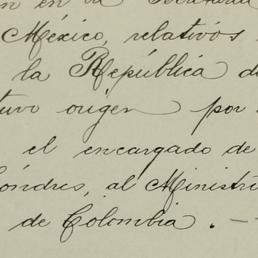 en la Secretaría
México, relativós
la República d
tuvo origen por
el encargado de
Londres, al Ministr
de Colombia. —